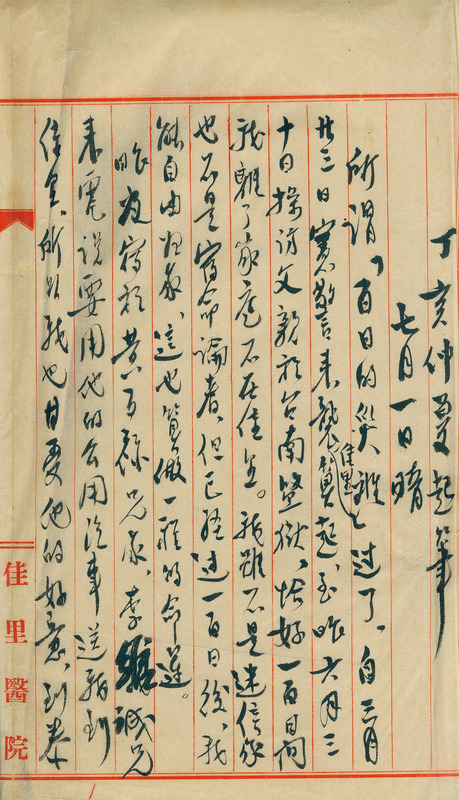 丁亥仲夏起筆
七月一日晴
所謂「百日的災難」過了、自三月
廿三日憲警來襲佳里算起至昨六月三
十日探訪父親於台南監獄、恰好一百日間
我離了家庭不在佳里。我雖不是迷信家
也不是宿命論者、但已經過一百日後、我
能自由归家、這也算做一種的命運。
昨夜宿於黃百祿兄家、李 誠兄
來電説要用他的公用汽車送我到
佳里、所以我也甘受他的好意、到泰
佳里醫院